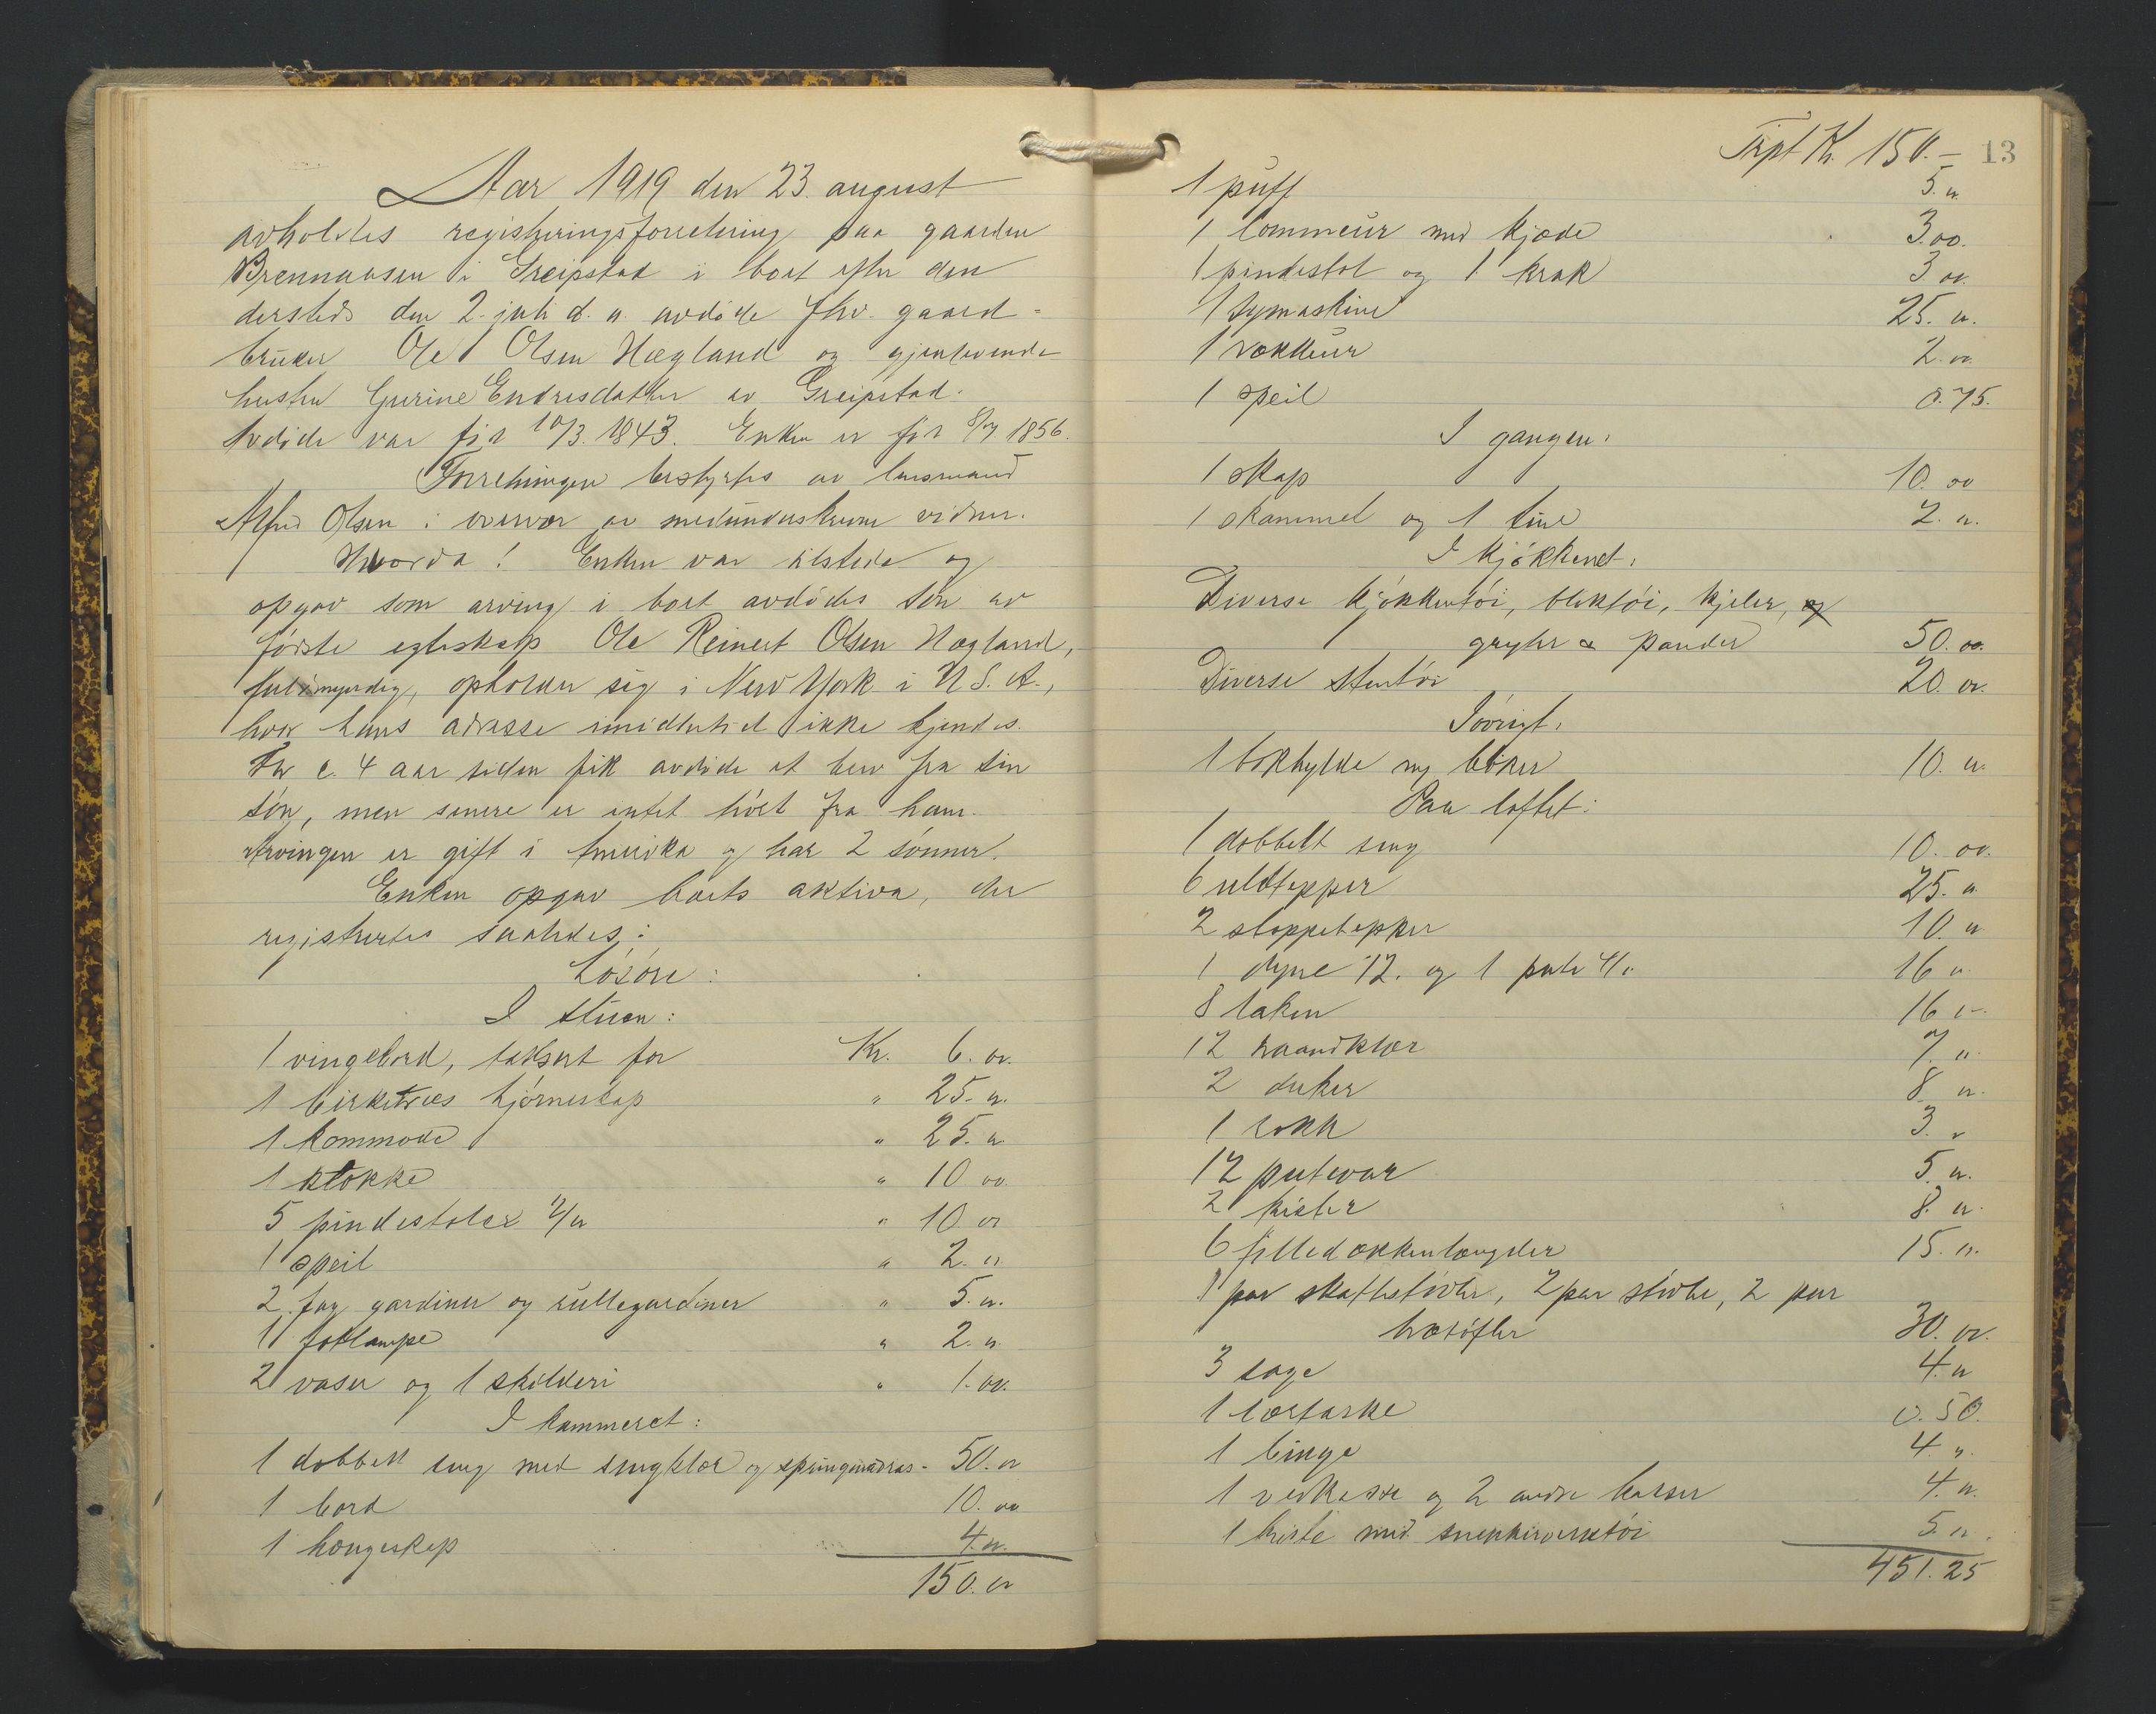 Aar 1919 den 23. august
avholdtes registreringsforretning paa gaarden
Brennaasen i Greipstad i boet efter den
dersteds den 2. juli d. a. avdöde fhv. gaard-
bruker Ole Olsen Hægland og gjenlevende
hustru Gurine Endresdatter av Greipstad.
Avdöde var föd 10/3 1843. Enken er föd 8/7 1856.
Forretningen bestyrtes av lensmand
Alfred Olsen i overvær av medunderskrevne vidner.
Hvorda! Enken var tilstede og
opgav som arving i boet avdödes sön av
förste egteskap Ole Reinert Olsen Hægland,
fuldmyndig, opholder sig i New York i U. S. A.,
hvor hans adresse imidlertid ikke kjendes.
For c. 4 aar siden fik avdöde et brev fra sin
sön, men senere er intet hört fra ham.
Arvingen er gift i Amerika og har 2 sönner.
Enken opgav boets aktiva, der
registrertes saaledes:
Lösöre:
I stuen:
1 vingebord, taksert for Kr. 6. oo.
1 birketræs hjörneskap " 25. "
1 kommode " 25. "
1 klokke " 10 oo.
5 pindestoler 2/" " 10 oo
1 speil " 2. "
2 fag gardiner og rullegardiner " 5. "
1 fotlampe " 2. "
2 vaser og 1 skilderi " 1. oo.
I kammeret:
1 dobbelt seng med sengklær og springmadras - 50. oo
1 bord 10. oo
1 hængeskap 4. "
150. oo
Trpt Kr. 150.- 13
1 puff 5. "
1 lommeur med kjæde 3. oo.
1 pindestol og 1 krak 3 oo.
1 symaskine 25. "
1 vækkeur 2. oo.
1 speil 0.75.
I gangen:
1 skap 10. oo
1 skammel og 1 tine 2. "
I kjökkenet:
Diverse kjökkentöi, bliktöi, kjeler, og
gryter & pander 50. oo.
Diverse stentöi 20. oo.
Iövrigt:
1 bokhylde m/ böker 10. "
Paa loftet:
1 dobbelt seng 10. oo.
6 uldtepper 25. "
2 stoppetepper 10. "
1 dyne 12. og 1 pute 4/" 16 "
8 laken 16 "
12 haandklær 7. "
2 duker 8 "
1 rokk 3. "
12 putevar 5. "
2 kister 8. "
6 filledækkenlængder 15. "
1 par skaftestövler, 2 par stövle, 2 par
træsöfler 30. oo.
3 sage 4. "
1 lærtaske 0. 50.
1 binge 4 "
1 vedkasse og 2 andre kasser 4. "
1 kiste med snekkerverktöi 5. "
451.25